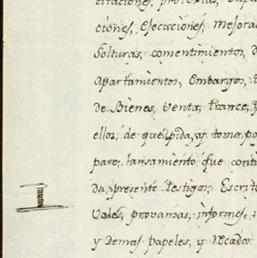 citaciones, protextas,
ciones, Execuciones, Mejora
Solturas, consentimientos, d
Apartamientos, Embargos,
de Bienes, Venta, trance,
ellos, de que pida, y tome po
paro; lansamiento que conti
da, presente testigos, Escrit
Vales, provanzas, informes,
y Demas papeles, y recador